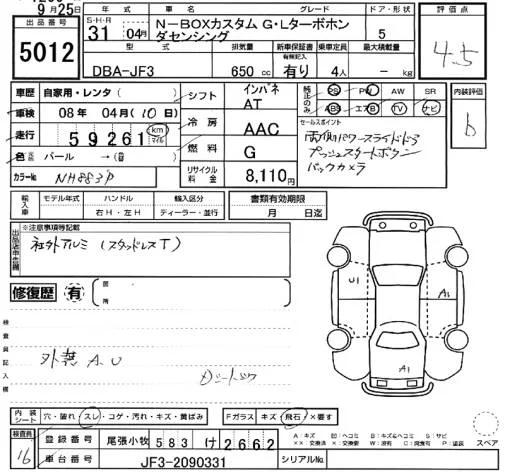 9月25日
出品番号
5012
年式
S・H・R
31 04月
車名 グレード
N-BOXカスタム G・Lターボホン
ダセンシング
ドア・形状
5
DBA-JF3
排気量
650 cc
新車保証書
有無記入
有り
乗車定員
4人
最大積載量
- kg
評価点
4.5
車歴 自家用・レンタ
車検 08年 04月(10日)
走行 59261 km
マイル
色 パール →
カラーNo. NH883P
シフト インパネ
AT
冷房 AAC
燃料 G
リサイクル
料金 8,110円
純正のみ PS PW AW SR
ABS エアB TV ナビ
セールスポイント
両側パワースライドドア
プッシュスタートボタン
バックカメラ
内装評価
b
輸入車 モデル年式 ハンドル 輸入区分 書類有効期限
右H・左H ディーラー・並行 月 日迄
※注意事項等記載
社外アルミ(スタッドレスT)
修復歴 有
箇所
検査員記入欄
外装 A.U
U1
A1
A1
内装
シート
穴・破れ スレ・コゲ・汚れ・キズ・黄ばみ
Fガラス キズ・飛石・×要す
検査員
16
登録番号 尾張小牧 583 け 2662
車台番号 JF3-2090331
シリアルNo.
A:キズ U:ヘコミ B:キズ&ヘコミ S:サビ
スペア